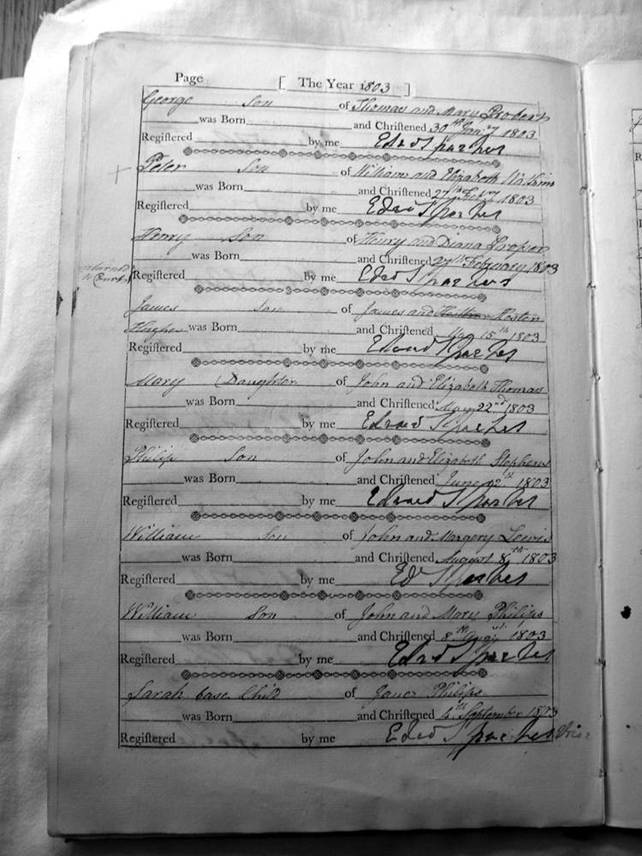 Page [ The Year 1803 ]
George Son of Thomas and Mary Probert
was Born and Chriſtened 30th Jany 1803
Regiſtered by me Edwd Sparkes
Peter Son of William and Elizabeth Watkins
was Born and Chriſtened 27th 1803
Regiſtered by me Edwd Sparkes
Henry Son of Henry and Diana Proper
was Born and Chriſtened 27th February 1803
Regiſtered by me Edwd Sparkes
James Son of James and Roston
Hughes was Born and Chriſtened May 15th 1803
Regiſtered by me Edward Sparkes
Mary Daughter of John and Elizabeth Thomas
was Born and Chriſtened May 22nd 1803
Regiſtered by me Edward Sparkes
Philip Son of John and Elizabeth Stephens
was Born and Chriſtened June 1803
Regiſtered by me Edward Sparkes
William Son of John and Margery Lewis
was Born and Chriſtened August 8th 1803
Regiſtered by me Edw Sparkes
William Son of John and Mary Philips
was Born and Chriſtened 8th 1803
Regiſtered by me Edwd Sparkes
Sarah base Child of Philips
was Born and Chriſtened September 1803
Regiſtered by me Edwd Sparkes